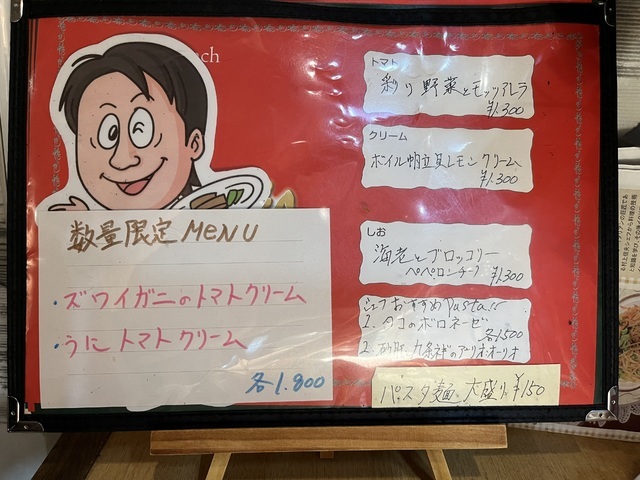 数量限定 MENU
・ズワイガニのトマトクリーム
・うにトマトクリーム
各1.800
トマト
彩り野菜とモッツァレラ
¥1.300
クリーム
ホイル帆立貝レモンクリーム
¥1.300
しお
海老とブロッコリー
ペペロンチーノ ¥1.300
シェフおすすめPasta
1. タコのボロネーゼ
各1500
2. 砂肝、九条ネギのアーリオ・オーリオ
パスタ麺、大盛り、¥150